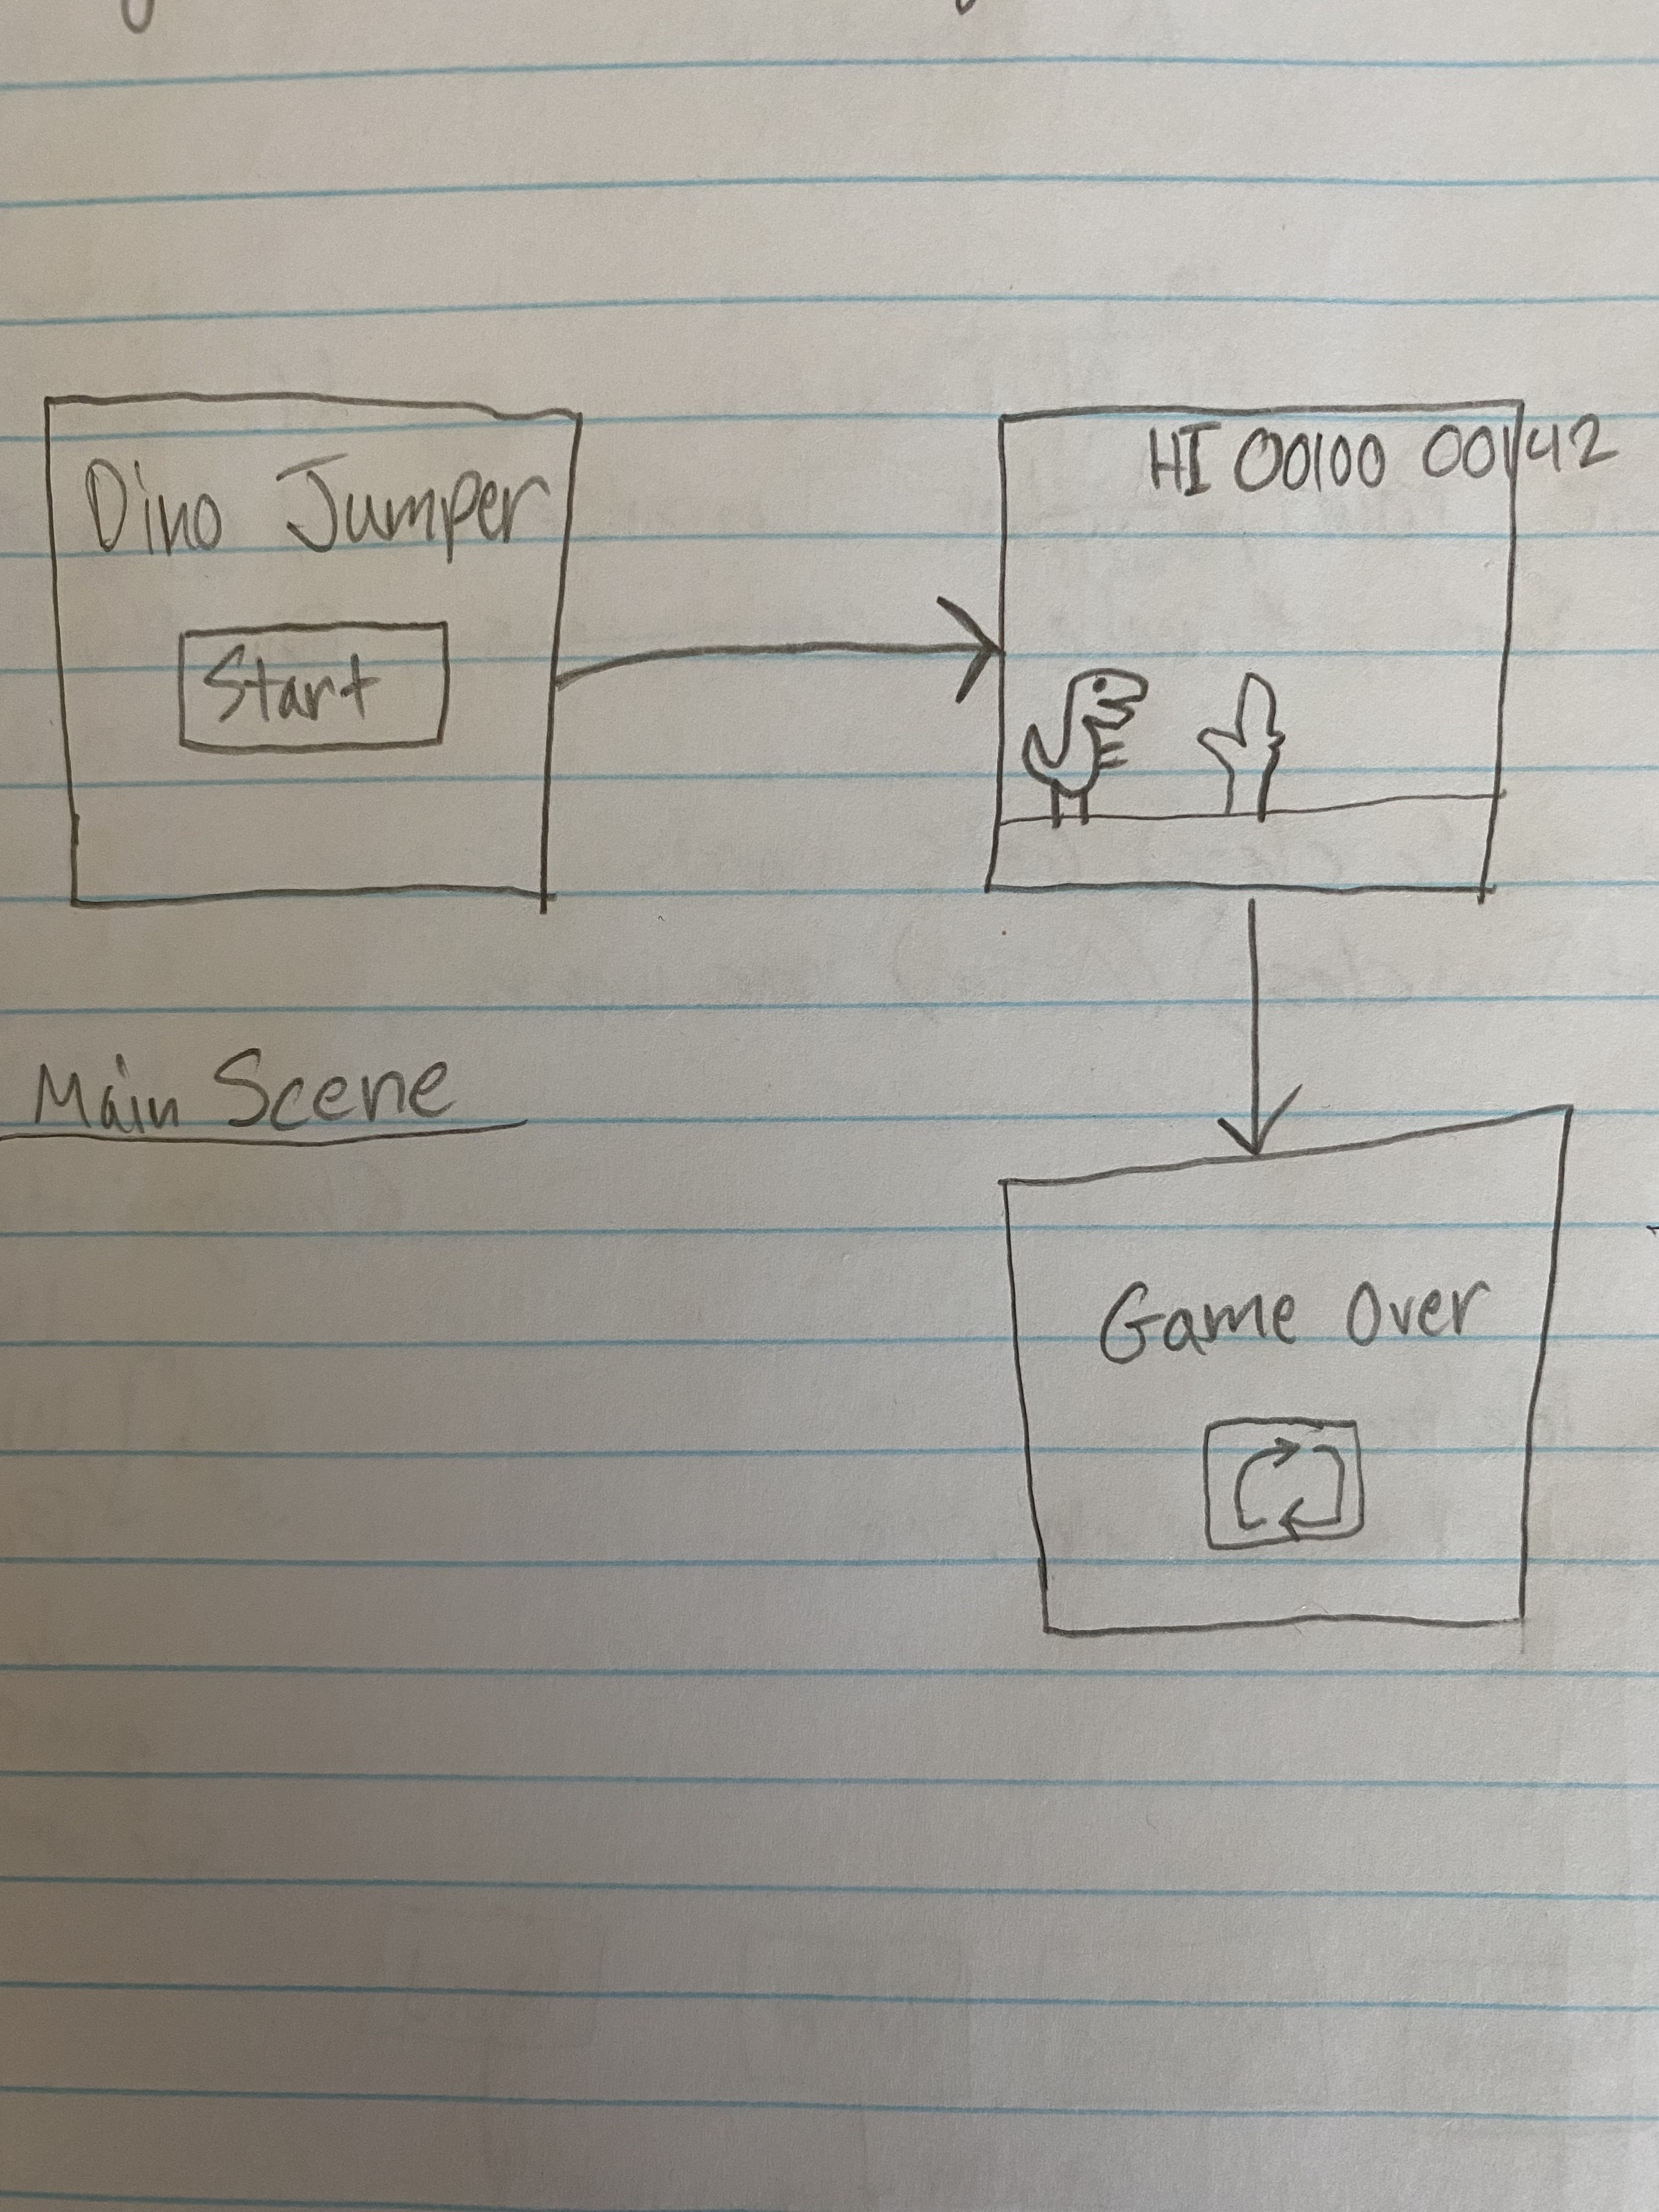 Dino Jumper
Start
HI 00100 00142
Main Scene
Game Over